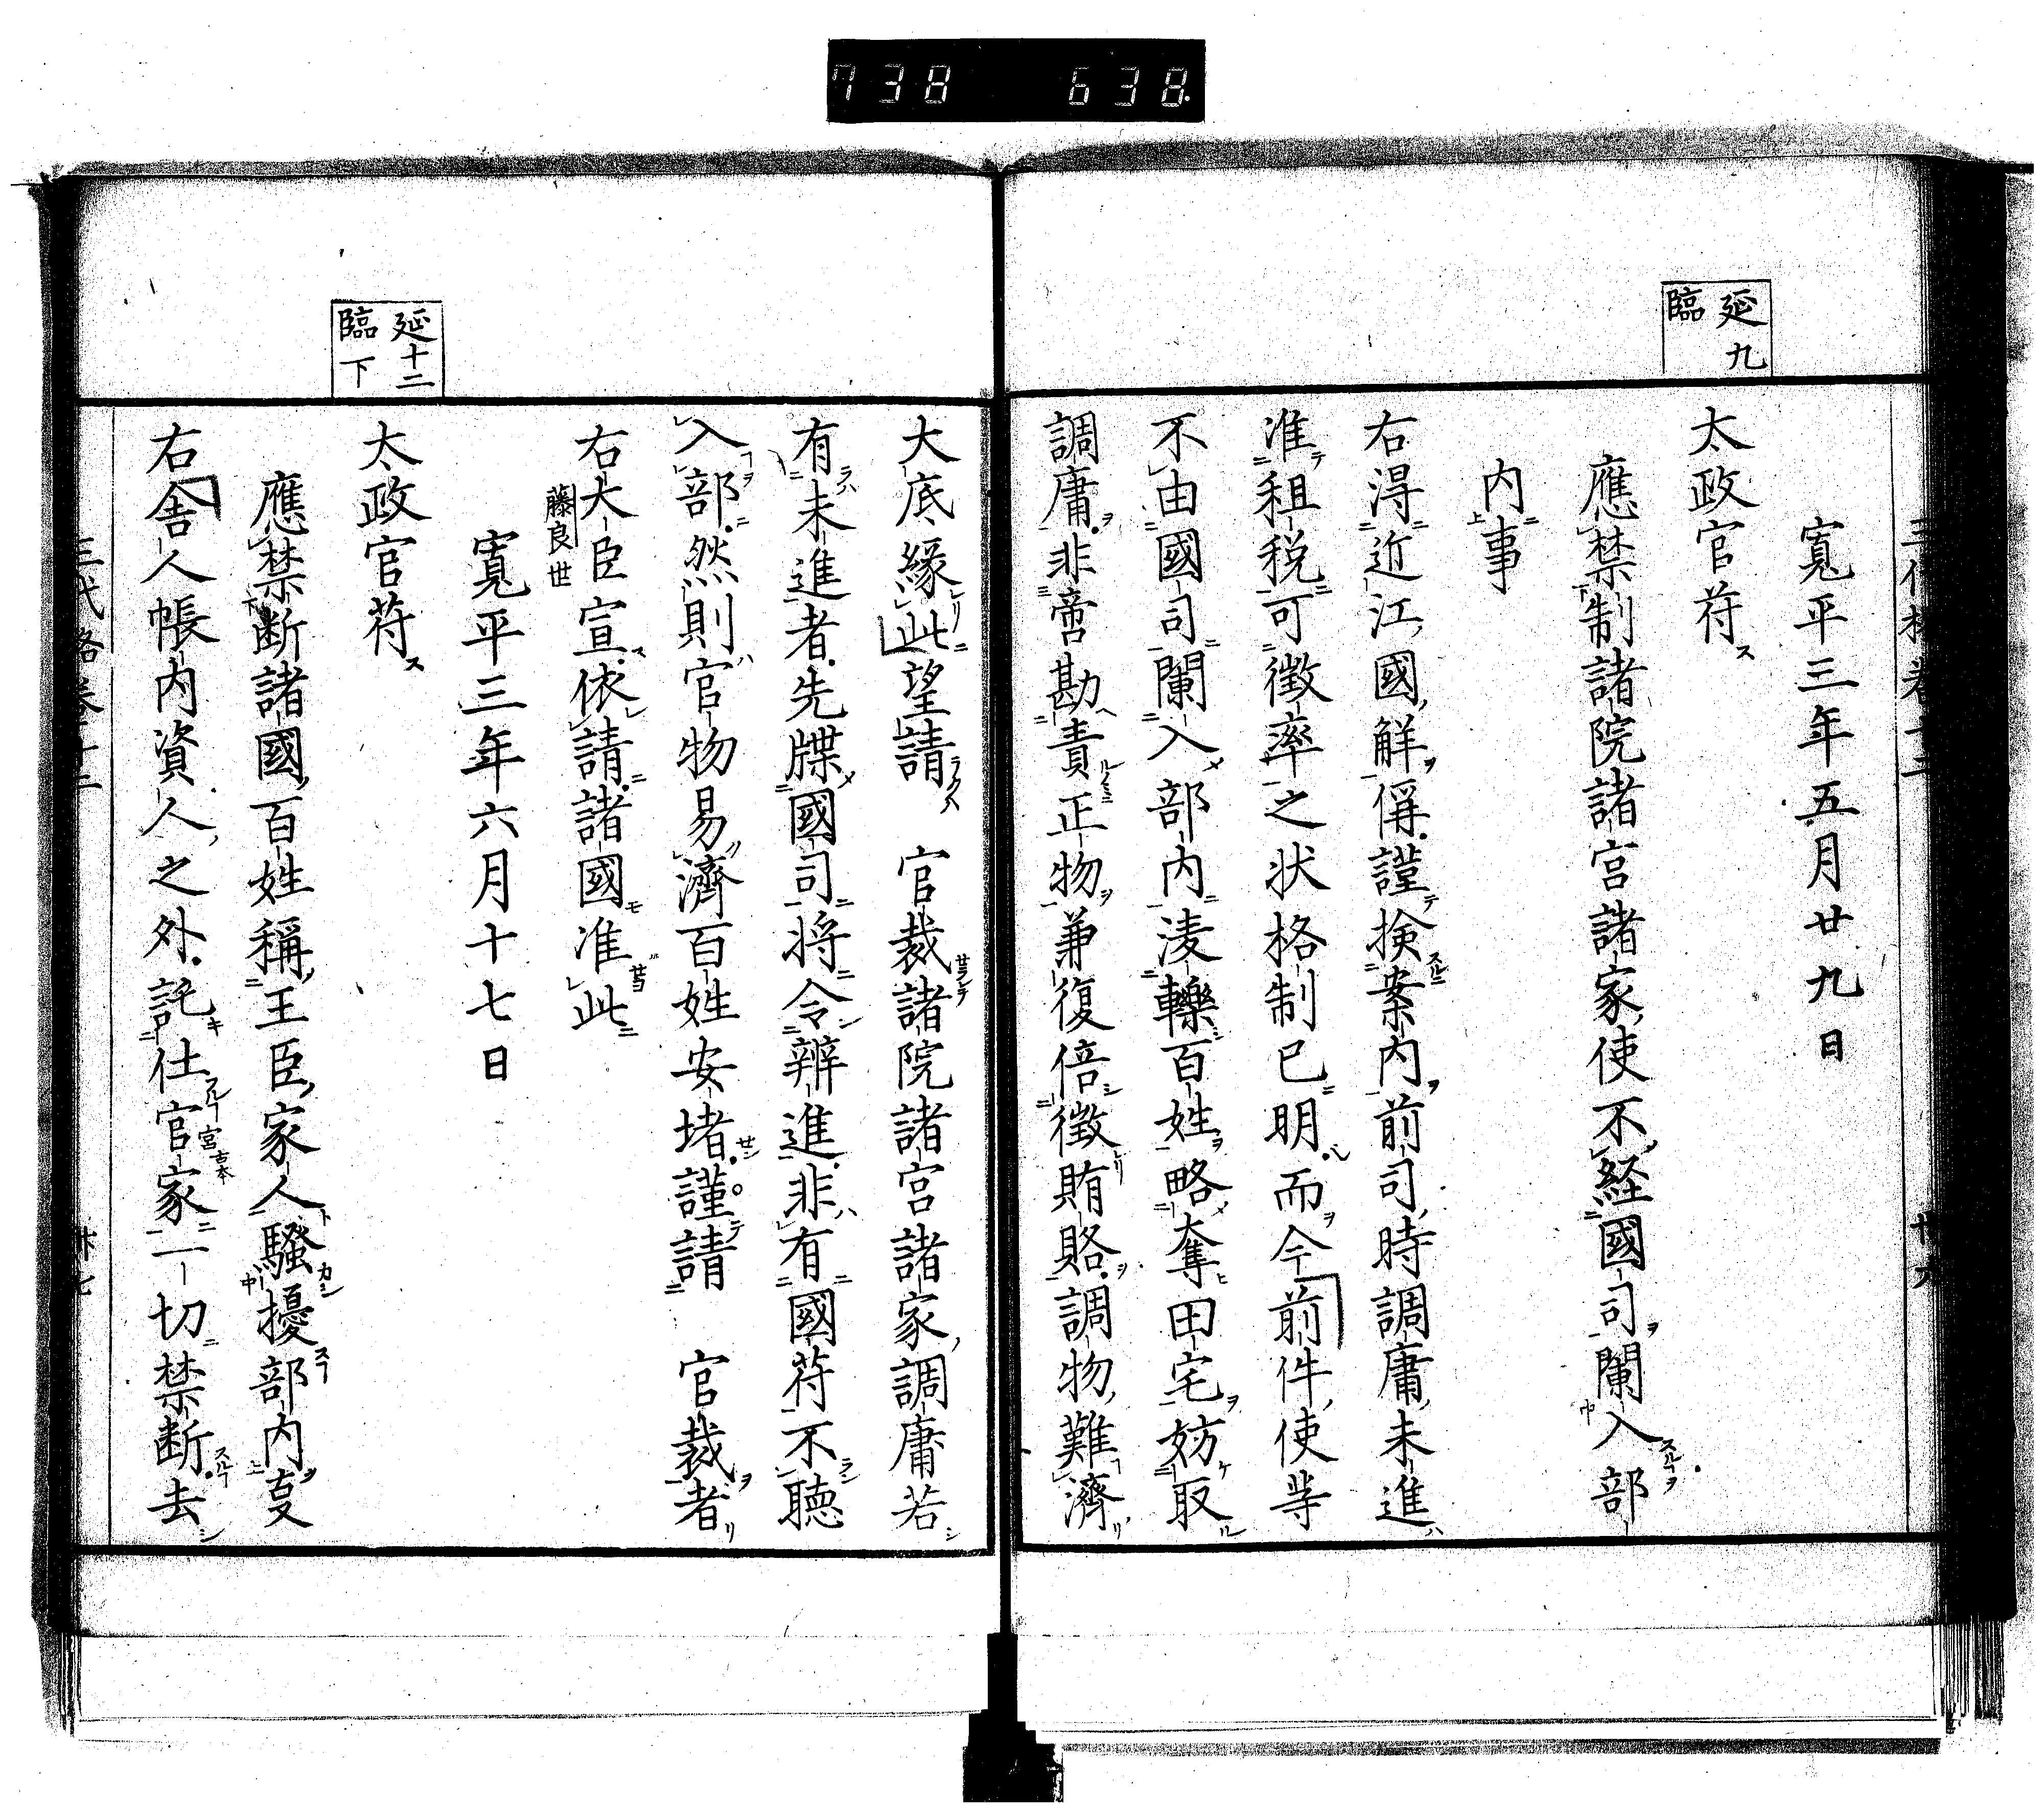 738 638
延九
臨
寛平三年五月廿九日
太政官苻ス
應禁制諸院諸宮諸家使不経國司闌入部
内事
右得近江國解偁謹検案内前司時調庸未進
准租税可徴率之状格制已明而今前件使等
不由國司闌入部内淩轢百姓略奪田宅妨取
調庸非啻勘責正物兼復倍徴賄賂調物難濟
大底縁此望請　官裁諸院諸宮諸家調庸若
有未進者先牒國司将令辨進非有國苻不聴
入部然則官物易濟百姓安堵謹請　官裁者
右大臣宣依請諸國准此
藤良世
寛平三年六月十七日
延十二
臨下
太政官苻ス
應禁断諸國百姓稱王臣家人騒擾部内㕝
右舎人帳内資人之外託仕官家一切禁断去
宮古本
三代格巻十二